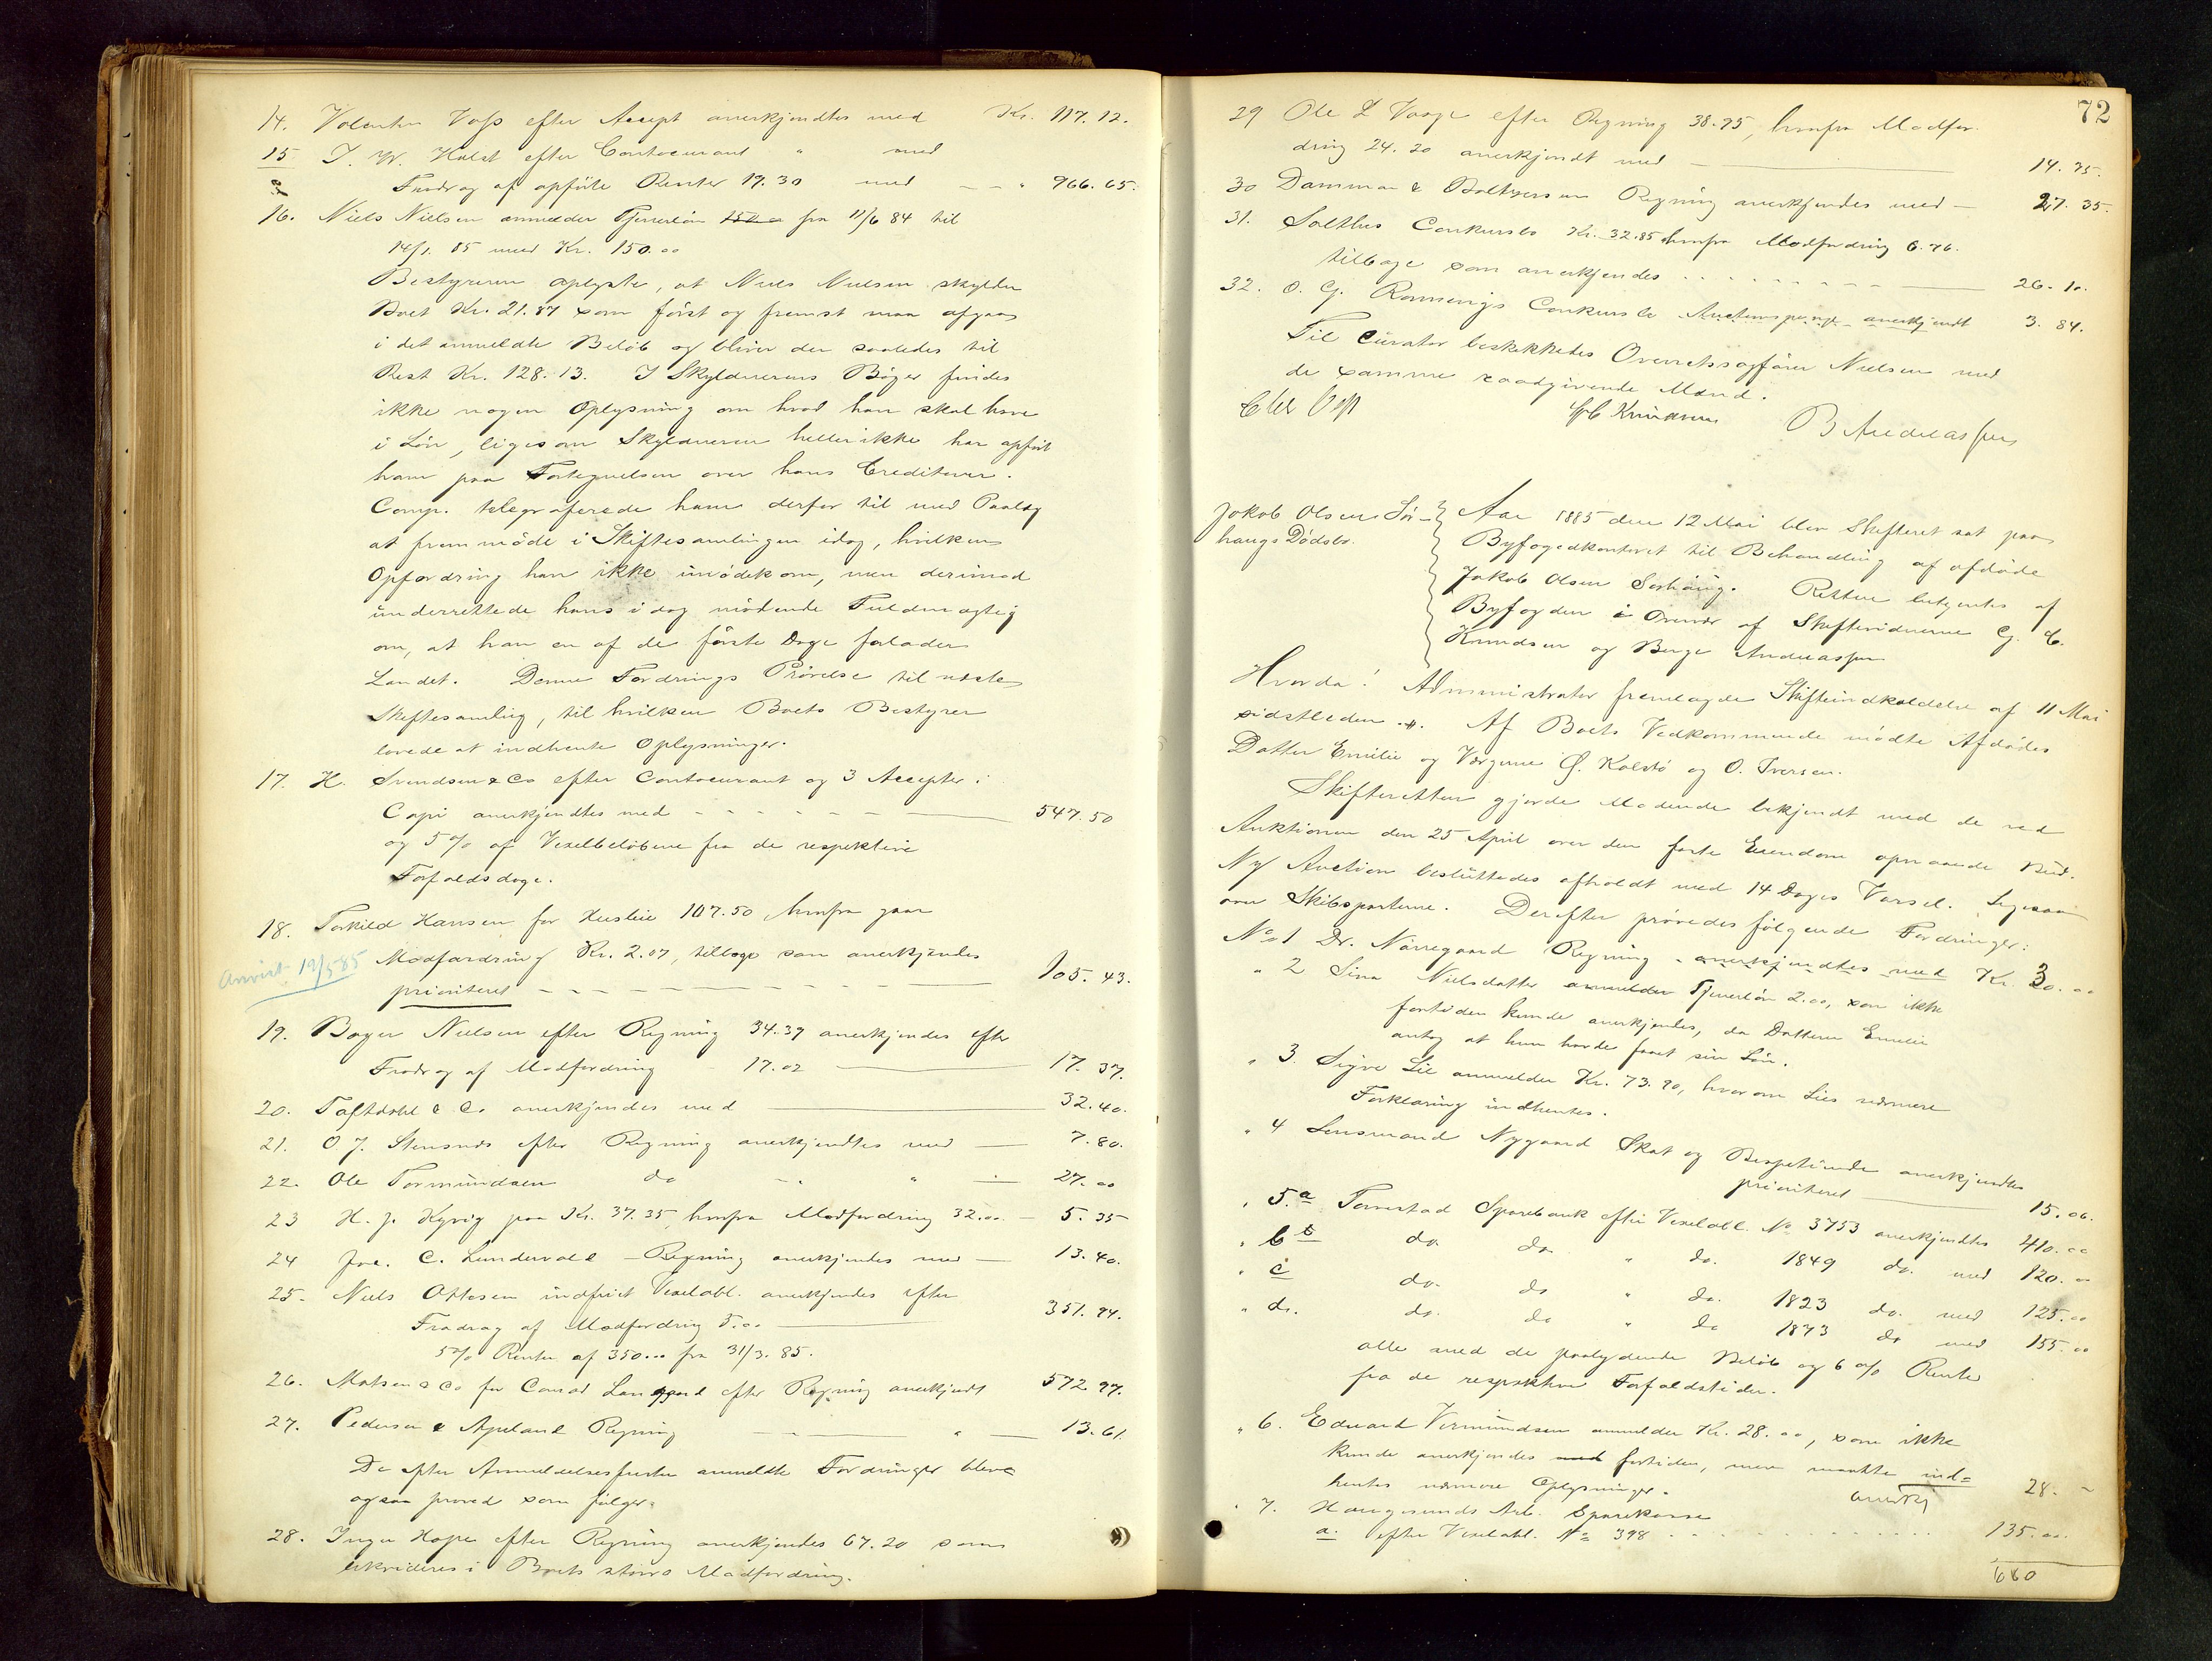 14. Valentin Voss efter Accept anerkjendtes med Kr. 117.12.
15 J. W. Holst efter Contocurant " med
Fradrag af opførte Renter 19.30 med - - " 966.65.
16. Niels Nielsen anmelder Tjenerløn fra 11/6 84 til
14/1. 85 med Kr. 150.00
Bestyreren oplyste, at Niels Nielsen skylder
Boet Kr. 21.87 som først og fremst maa afgaa
i det anmeldte Beløb og bliver der saaledes til
Rest Kr. 128.13. I Skyldnerens Bøger findes
ikke nogen Oplysning om hvad han skal have
i Løn, ligesom Skyldneren heller ikke har opført
ham paa Fortegnelsen over hans Creditorer.
Comp. telegraferede ham derfor til med Paalæg
at fremmøde i Skiftesamlingen idag, hvilken
Opfordring han ikke imødekom, men derimod
underrettede hans idag mødende Fuldmægtig
om, at han en af de første Dage forlader
Landet. Denne Fordrings Prøvelse til næste
Skiftesamling, til hvilken Boets Bestyrer
lovede at indhente Oplysninger.
17. H. Svendsen & Co efter Contocurant og 3 Accepter i
Copi anerkjendtes med - - - - - - 547.50
og 5 % af Vexelbeløbene fra de respektive
Forfaldsdage.
18. Torkild Hansen for Husleie 107.50, hvorfra gaar
Modfordring Kr. 2.07, tilbage som anerkjendes
Anvist 19/5 85
prioriteret - - - - - 105.43.
19. Børger Nielsen efter Regning 34.39 anerkjendes efter
Fradrag af Modfordring 17.02 17.37.
20. & Co anerkjendes med 32.40.
21. O J. Stensnæs efter Regning anerkjendtes med 7.80.
22. Ole Tormundsen do - " 27.00
23 H. J. Kyvig paa Kr. 37.35, hvorfra Modfordring 32.00 - 5.35
24 Joe. C. Lundevald - Regning anerkjendes med 13.40.
25. Niels Ottesen indfriet Vexelobl. anerkjendes efter
Fradrag af Modfordring 5.00 351.94.
5 % Renter af 350.00 fra 31/3. 85.
26. Matsen & Co for Conrad Langaard efter Regning anerkjendt 572.97.
27. Pedersen & Apeland Regning - - " 13.61.
De efter Anmeldelsesfristen anmeldte Fordringer bleve
ogsaa prøved som følger.
28. Inger Hope efter Regning anerkjendes 67.20 som
likvideres i Boets større Modfordring.
72
29 Ole L Vaage efter Regning 38.95, hvorfra Modfor-
dring 24.20 anerkjendt med 14.75.
30 Damman & Regning anerkjendes med - 27.35.
31. Solthus Conkursbo Kr. 32.85 hvorfra Modfordring 6.76.
tilbage som anerkjendes - - - - - 26.10.
32. O. G. Rønnevigs Conkursbo anerkjendt 3.84.
Til Curator beskikkedes Overretssagfører Nielsen med
de samme raadgivende Mænd.
G C Knudsen B Andreassen
Jakob Olsen Sør-
haugs Dødsbo.
Aar 1885 den 12 Mai blev Skifteret sat paa
Byfogedkontoret til Behandling af afdøde
Jakob Olsen Sørhaug. Retten betjentes af
Byfogden i Overvær af Skiftevidnerne G. C.
Knudsen og Berge Andreassen
Hvorda: Administrator fremlagde Skifteindkaldelse af 11 Mai
sidstleden. Af Boets Vedkommende mødte Afdødes
Datter Emilie og Værgerne Ø. Kolstø og O. Iversen.
Skifteretten gjorde Mødende bekjendt med de ved
Auktionen den 25 April over den faste Eiendom opnaaede Bud.
Ny Auction besluttedes afholdt med 14 Dages Varsel. Ligesaa
over Skibsparterne. Derefter prøvedes følgende Fordringer:
No 1 Dr. Nørregaard Regning anerkjendtes med Kr. 30.00
" 2 Sina Nielsdatter anmelder Tjenerløn 2.00, som ikke
fortiden kunde anerkjendes, da Datteren Emilie
antog at hun havde faaet sin Løn.
" 3. Sigve Lie anmelder Kr. 73.90, hvorom Lies nærmere
Forklaring indhentes.
" 4 Lensmand Nygaard Skat og Bergetiende anerkjendtes
prioriteret 15.06.
" 5.a Torvestad Sparebank efter Vexelobl. No 3753 anerkjendtes 410.00
" b do. do " do. 1849 do. med 120.00
" c do. do " do. 1823 do. med 125.00
" d. do. do " do 1873 do med 155.00
alle med de paalydende Beløb og 6 % Rente
fra de respektive Forfaldstider.
" 6. Edvard Vermundsen anmelder Kr. 28.00, som ikke
kunde anerkjendes med fortiden, men maatte ind=
hentes nærmere Oplysninger. anerkj 28. -
" 7. Haugesunds Arb. Sparekasse
a. efter Vexelobl. No 398 - - - 135.00.
660